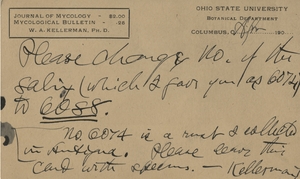 JOURNAL OF MYCOLOGY - $2.00
MYCOLOGICAL BULLETIN - .25
W. A. KELLERMAN, PH. D.
OHIO STATE UNIVERSITY
BOTANICAL DEPARTMENT
COLUMBUS, 190
Please change No. of the
(which I gave you as 6074)
to 6088.
No. 6074 is a rust I collected
in. Please leave this
card with specims. — Kellerman